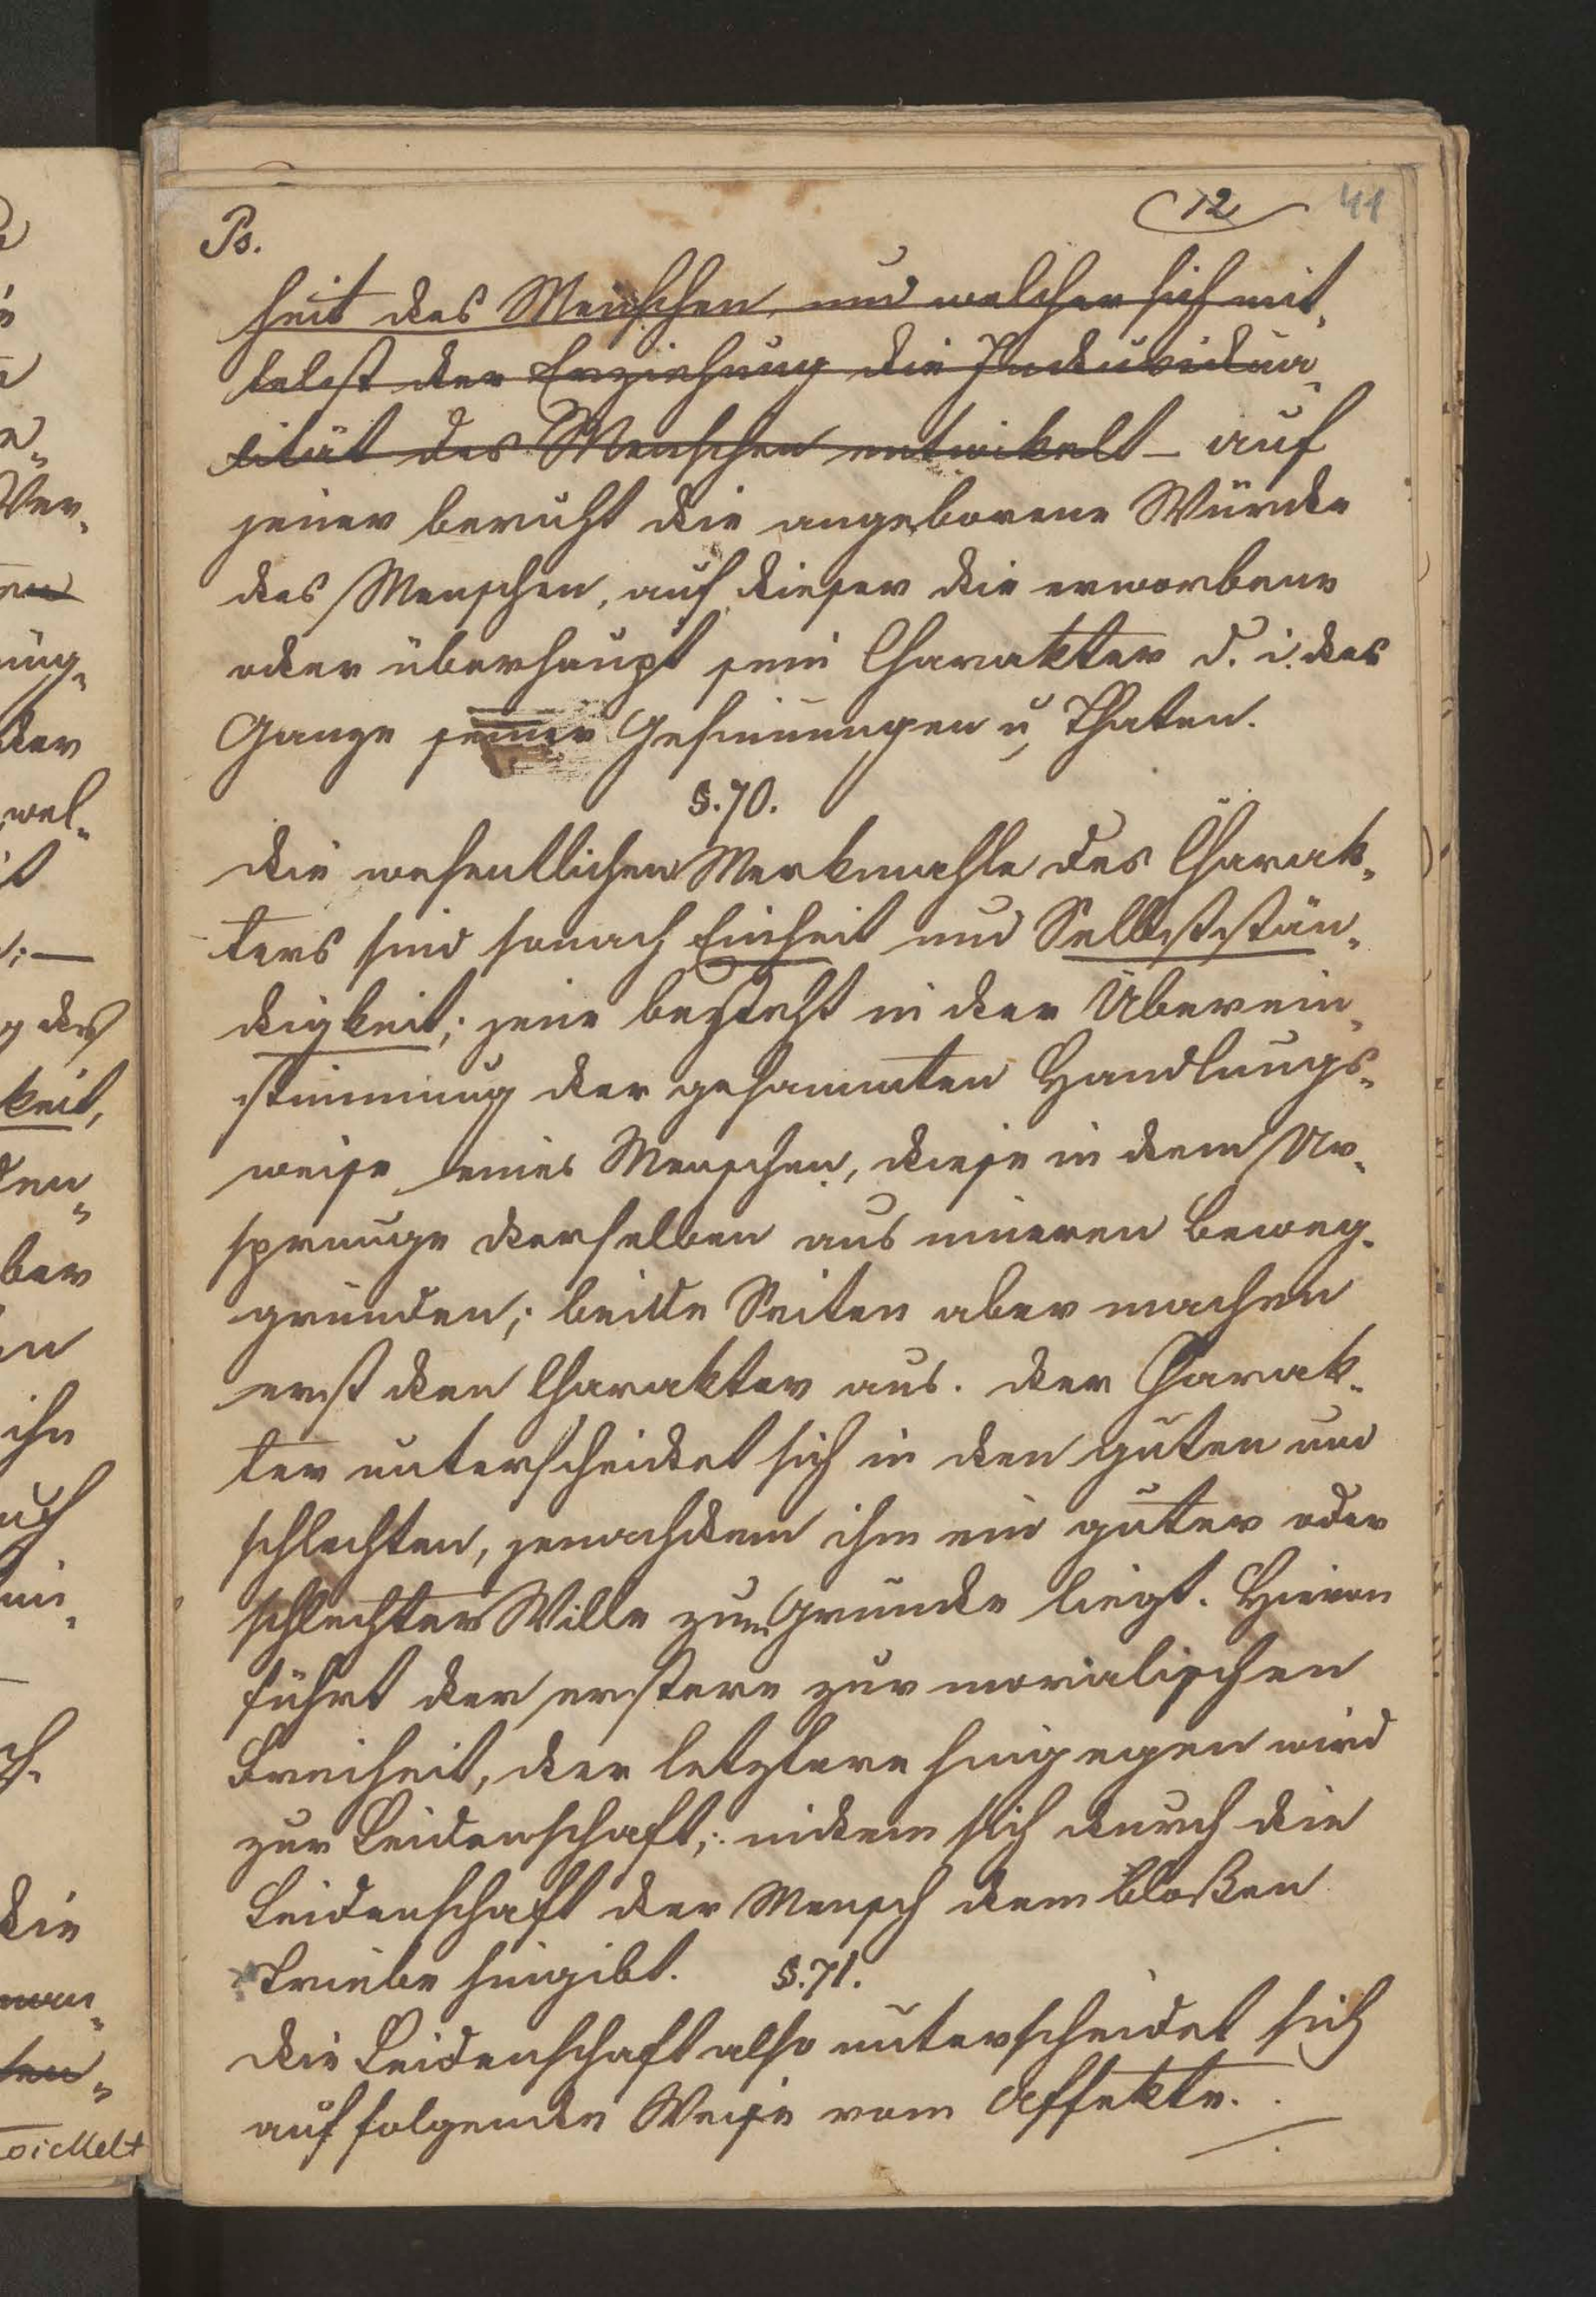 Ps.
12
41
heit des Menschen, und welcher sich mit„
telst der Erziehung die Induvidua„
lität des Menschen entwikelt – auf
jener beruht die angeborene Würde
des Menschen, auf dieser die erworbene
oder überhaupt sein Charakter d. i. das
Ganze seiner Gesinnungen u Thaten.
§. 70.
Die wesentlichen Merkmahle des Charak„
ters sind sonach Einheit und Selbstстän„
digkeit; jene besteht in der Überein„
stimmung der gesammten Handlungs„
weise eines Menschen, diese in dem Ur„
sprunge derselben aus inneren Beweg„
gründen; beide Seiten aber machen
erst den Charakter aus. Der Charak„
ter unterscheidet sich in den guten und
schlechten, jenachdem ihm ein guter oder
schlechter Wille zum Grunde liegt. Hievon
führt der erstere zur moralischen
Freiheit, der letztere hingegen wird
zur Leidenschaft; indem sich durch die
Leidenschaft der Mensch dem bloßen
Triebe hingibt. §. 71.
Die Leidenschaft also unterscheidet sich
auf folgende Weise vom Affekte.